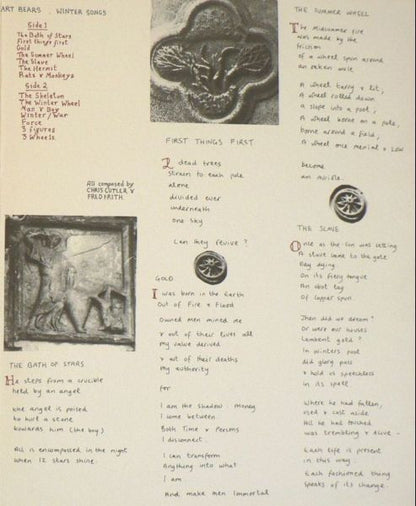 ART BEARS WINTER SONGS
Side 1
The Bath of Stars
First things first
Gold
The Summer Wheel
The Slave
The Hermit
Rats & Monkeys
Side 2
The Skeleton
The Winter Wheel
Man & Boy
Winter / War
Force
3 figures
3 Wheels.
All composed by
CHRIS CUTLER &
FRED FRITH.
THE BATH OF STARS
He steps from a crucible
held by an angel
the angel is poised
to hurl a stone
towards him (the boy)
All is encompassed in the night
when 12 stars shine.
FIRST THINGS FIRST
2 dead trees
strain to each pole
alone
divided ever
underneath
one sky
Can they revive?
GOLD
I was born in the Earth
Out of Fire & Flood
Owned men mined me
& out of their lives all
my value derived
& out of their deaths
my authority
for
I am the shadow money
I come between
Both Time & Persons
I disconnect
I can transform
Anything into what
I am
And make men immortal
THE SUMMER WHEEL
The Midsummer fire
was made by the
friction
of a wheel spun around
an oaken axle
A wheel tarry & lit,
A wheel rolled down
A slope into a pool,
A wheel borne on a pole,
borne around a field,
A wheel once menial & low
become
an aureole.
THE SLAVE
Once as the sun was setting
A slave came to the gate
Bay dying
On its fiery tongue
An obot lay
Of copper spun.
Then did we dream?
Or were our houses
Lambent gold?
In winters pool
did glory pass
& hold us speechless
in its spell
Where he had fallen,
used & cast aside
All he had touched
was trembling & alive -
Each life is present
in this way.
Each fashioned thing
speaks of its change.